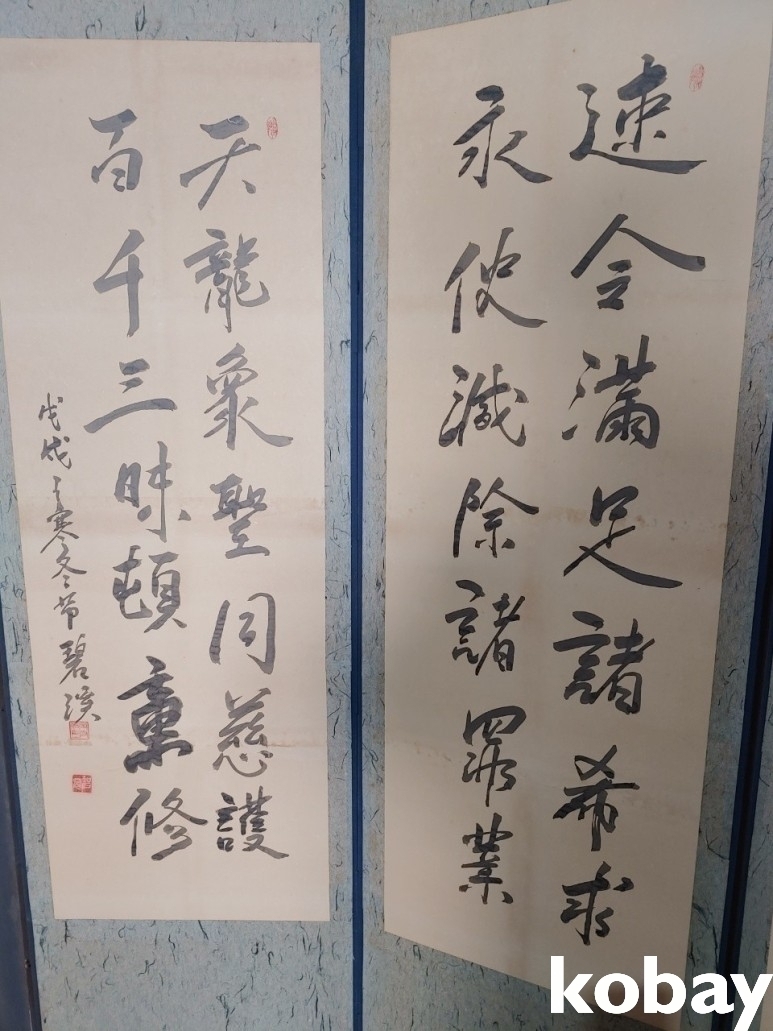 速令滿足諸希求
永使滅除諸罪業
天龍衆聖同慈護
百千三昧頓熏修
戊戌之寒冬節 碧溪
kobay